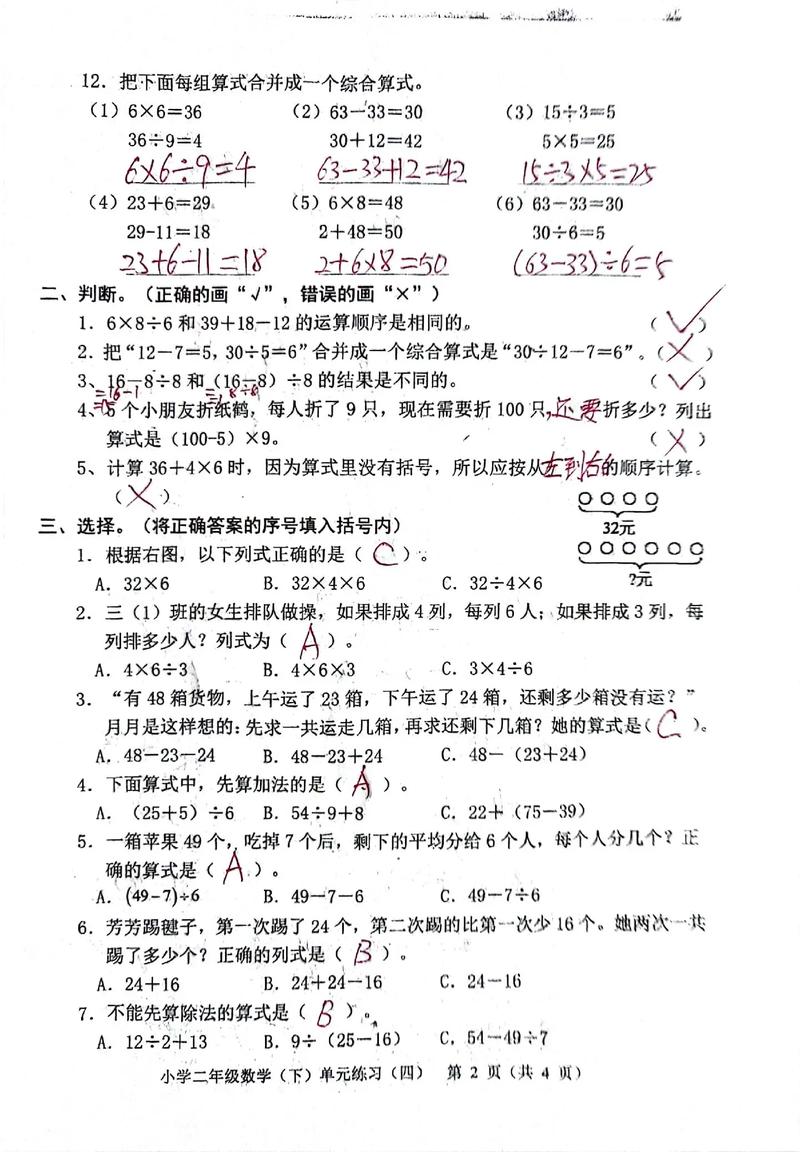 12. 把下面每组算式合并成一个综合算式。
(1) 6×6=36 (2) 63-33=30 (3) 15÷3=5
36÷9=4 30+12=42 5×5=25
6×6÷9=4 63-33+12=42 15÷3×5=25
(4) 23+6=29 (5) 6×8=48 (6) 63-33=30
29-11=18 2+48=50 30÷6=5
23+6-11=18 2+6×8=50 (63-33)÷6=5
二、判断。(正确的画“√”,错误的画“×”)
1. 6×8÷6和39+18-12的运算顺序是相同的。 (√)
2. 把“12-7=5, 30÷5=6”合并成一个综合算式是“30÷12-7=6”。(×)
3、16-8÷8和(16-8)÷8的结果是不同的。 (√)
=16-1 =8÷8
=15 =1
4、5个小朋友折纸鹤,每人折了9只,现在需要折100只,还要折多少?列出
算式是(100-5)×9。 (×)
5、计算36+4×6时,因为算式里没有括号,所以应按从左到右的顺序计算。
(×)
32元
?元
三、选择。(将正确答案的序号填入括号内)
1. 根据右图,以下列式正确的是( C )。
A. 32×6 B. 32×4×6 C. 32÷4×6
2. 三(1)班的女生排队做操,如果排成4列,每列6人;如果排成3列,每
列排多少人?列式为( A )。
A. 4×6÷3 B. 4×6×3 C. 3×4÷6
3. “有48箱货物,上午运了23箱,下午运了24箱,还剩多少箱没有运?”
月月是这样想的:先求一共运走几箱,再求还剩下几箱?她的算式是( C )。
A. 48-23-24 B. 48-23+24 C. 48-(23+24)
4. 下面算式中,先算加法的是( A )。
A. (25+5)÷6 B. 54÷9+8 C. 22+(75-39)
5. 一箱苹果49个,吃掉7个后,剩下的平均分给6个人,每个人分几个?正
确的算式是( A )。
A. (49-7)÷6 B. 49-7-6 C. 49-7÷6
6. 芳芳踢毽子,第一次踢了24个,第二次踢的比第一次少16个。她两次一共
踢了多少个?正确的列式是( B )。
A. 24+16 B. 24+24-16 C. 24-16
7. 不能先算除法的算式是( B )。
A. 12÷2+13 B. 9÷(25-16) C. 54-49÷7
小学二年级数学(下)单元练习(四) 第2页(共4页)